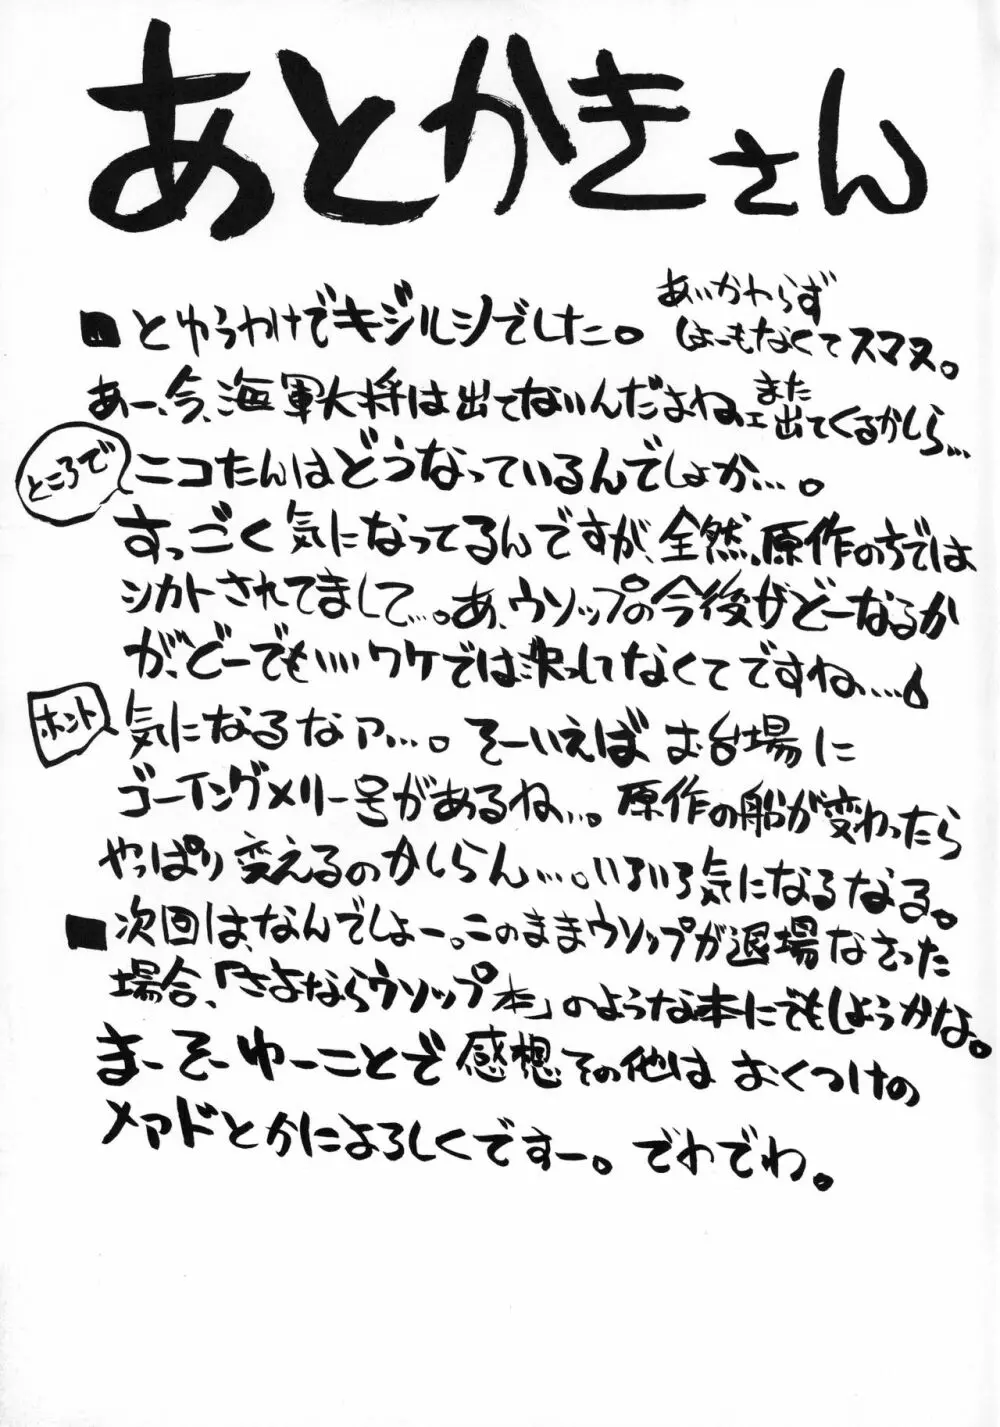 あとかきさん
■とゆうわけでキジルシでした。
あいかわらず
しょーもなくてスマヌ。
あー、今、海軍大将は出てないんだよね、また出てくるかしら…
ところで
ニコたんはどうなっているんでしょか…。
すっごく気になってるんですが、全然、原作の方では
シカトされてまして…。あ、ウソップの今後がどーなるか
が、どーでも……ワケでは決してなくてですね……
ホント
気になるなァ…。そーいえばお台場に
ゴーイングメリー号があるね…。原作の船が変わったら
やっぱり変えるのかしらん…。いろいろ気になるなる。
■次回は、なんでしょー。このままウソップが退場なさった
場合、「さよならウソップ本」のような本にでもしようかな。
まーそーゆーことで感想その他は おくつけの
メアドとかによろしくですー。でわでわ。